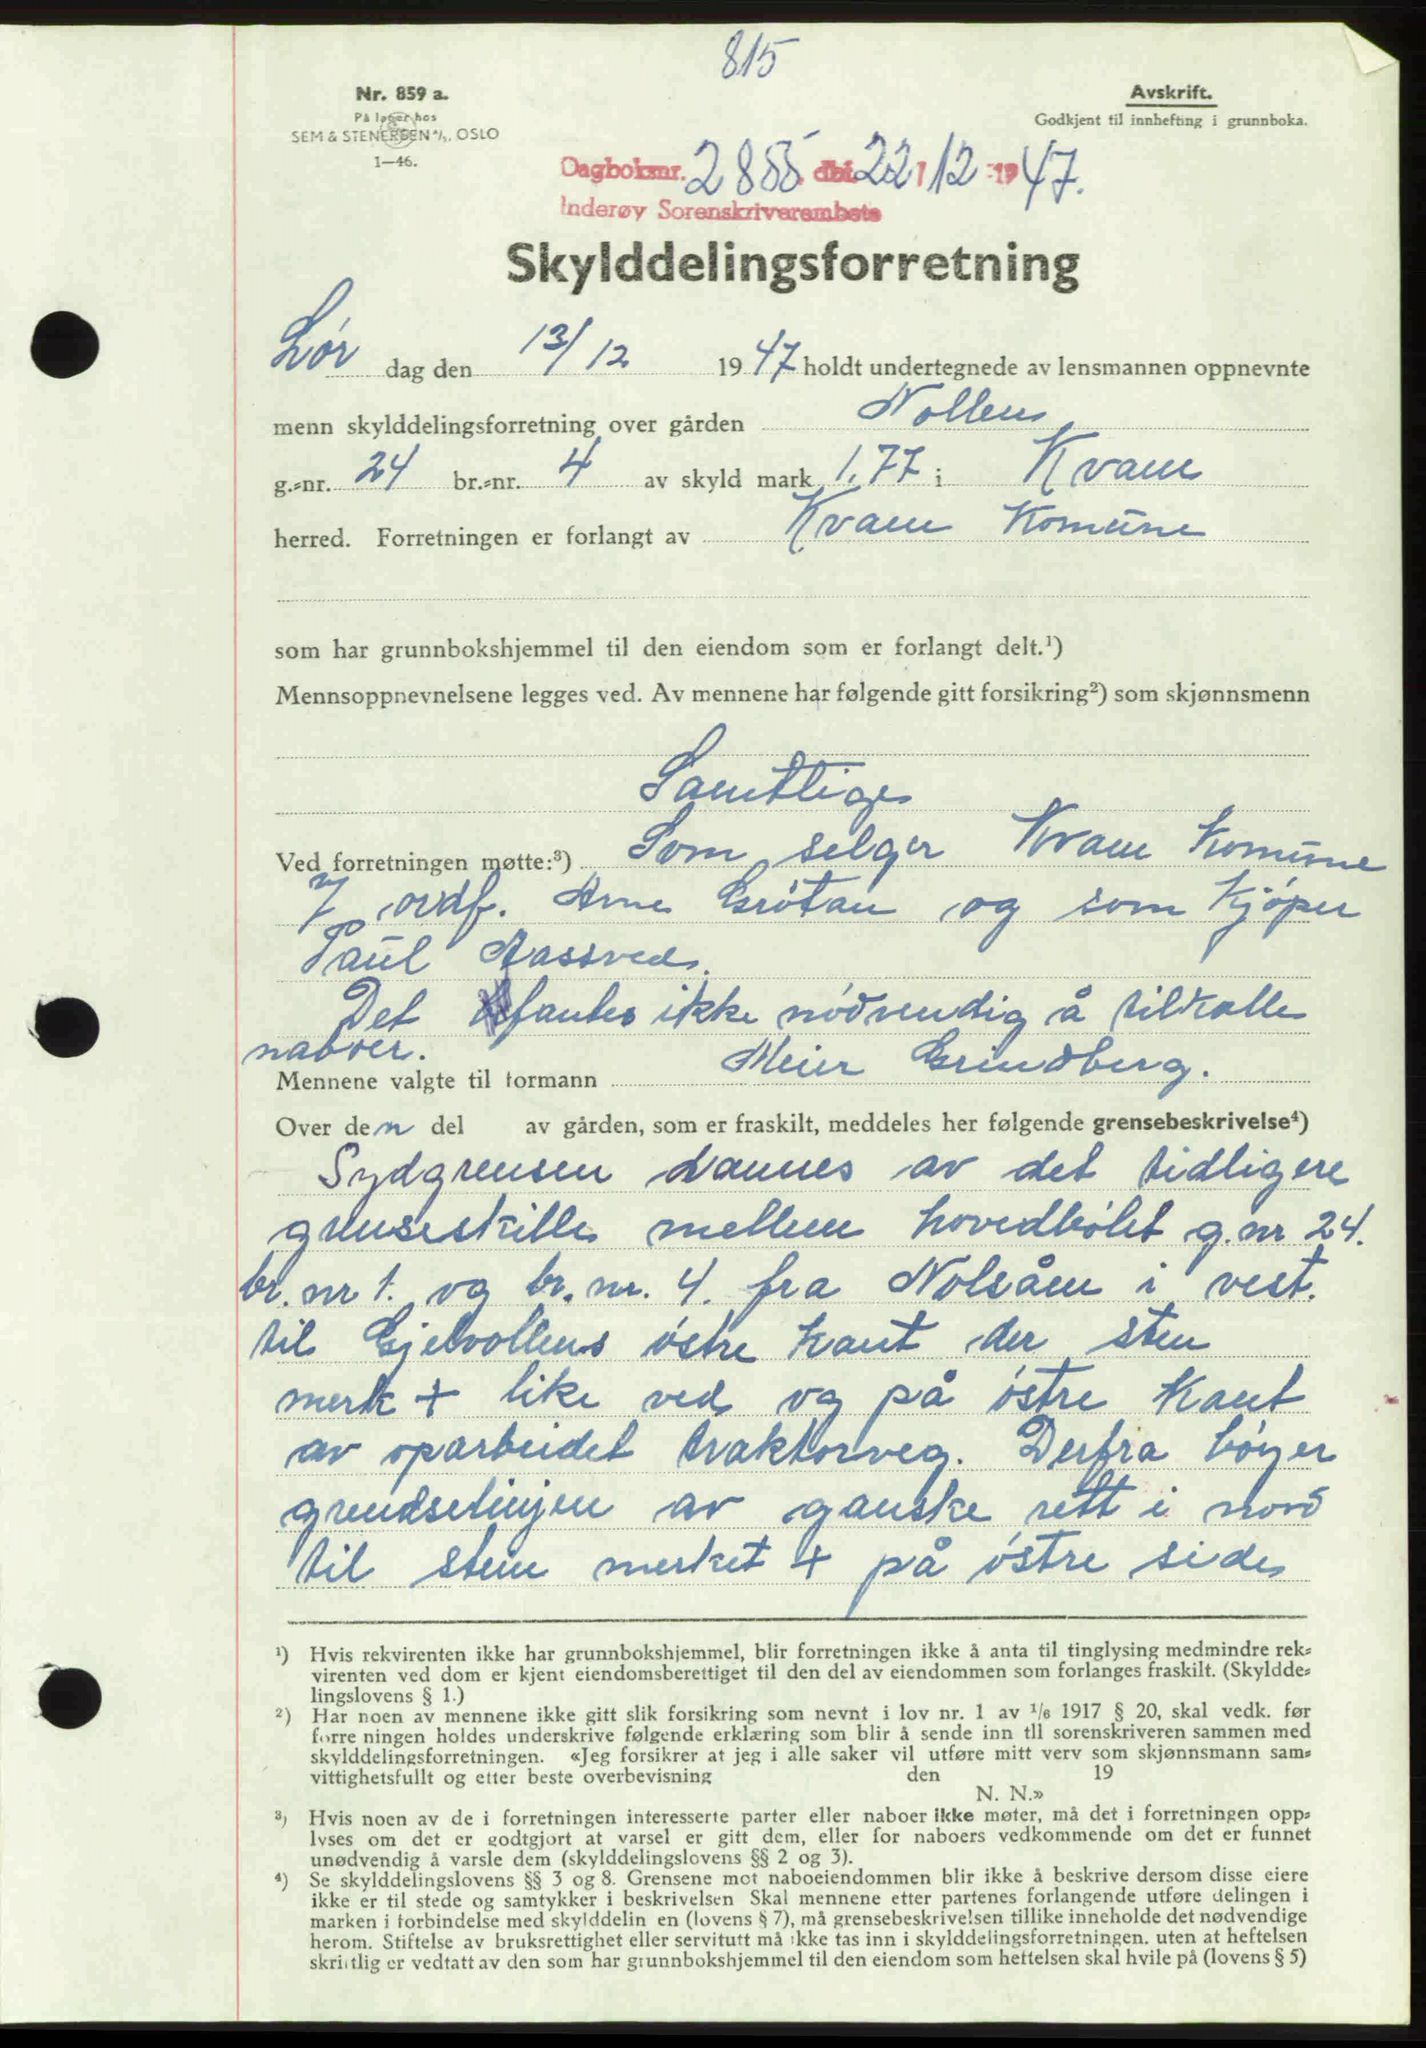 815
Nr. 859 a.
På lager hos
SEM & STENERSEN A/S, OSLO
1—46.
Avskrift.
Godkjent til innhefting i grunnboka.
Dagboksnr. 2855 dbl. 22 / 12 1947.
Inderøy Sorenskriverembete
Skylddelingsforretning
Lør dag den 13/12 1947 holdt undertegnede av lensmannen oppnevnte
menn skylddelingsforretning over gården Nollen
g.-nr. 24 br.-nr. 4 av skyld mark 1,77 i Kvam
herred. Forretningen er forlangt av Kvam Komune
som har grunnbokshjemmel til den eiendom som er forlangt delt.¹)
Mennsoppnevnelsene legges ved. Av mennene har følgende gitt forsikring²) som skjønnsmenn
Samtlige
Ved forretningen møtte:³) Som selger Kvam Komune
v/ ordf. Arne Grøtan og som Kjøper
Paul Aassved.
Det fantes ikke nødvendig å tilkalle
naboer.
Mennene valgte til formann Meier Grindberg.
Over den del av gården, som er fraskilt, meddeles her følgende grensebeskrivelse⁴)
Sydgrensen dannes av det tidligere
grenseskille mellem hovedbølet g.nr 24.
br. nr 1. og br. nr. 4. fra Nolsåen i vest.
til Gjelvollens østre kant der sten
merk + like ved og på østre Kant
av oparbeidet traktorveg. Derfra bøyer
grendselinjen av ganske rett i nord
til stein merket + på østre side
¹) Hvis rekvirenten ikke har grunnbokshjemmel, blir forretningen ikke å anta til tinglysing medmindre rek-
virenten ved dom er kjent eiendomsberettiget til den del av eiendommen som forlanges fraskilt. (Skyldde-
lingslovens § 1.)
²) Har noen av mennene ikke gitt slik forsikring som nevnt i lov nr. 1 av 1/6 1917 § 20, skal vedk. før
forre ningen holdes underskrive følgende erklæring som blir å sende inn til sorenskriveren sammen med
skylddelingsforretningen. «Jeg forsikrer at jeg i alle saker vil utføre mitt verv som skjønnsmann sam-
vittighetsfullt og etter beste overbevisning den 19
N. N.»
³) Hvis noen av de i forretningen interesserte parter eller naboer ikke møter, må det i forretningen opp-
lyses om det er godtgjort at varsel er gitt dem, eller for naboers vedkommende om det er funnet
unødvendig å varsle dem (skylddelingslovens §§ 2 og 3).
⁴) Se skylddelingslovens §§ 3 og 8. Grensene mot naboeiendommen blir ikke å beskrive dersom disse eiere
ikke er til stede og samtykker i beskrivelsen Skal mennene etter partenes forlangende utføre delingen i
marken i forbindelse med skylddelin en (lovens § 7), må grensebeskrivelsen tillike inneholde det nødvendige
herom. Stiftelse av bruksrettighet eller servitutt må ikke tas inn i skylddelingsforretningen. uten at heftelsen
skriftlig er vedtatt av den som har grunnbokshjemmel til den eiendom som heftelsen skal hvile på (lovens § 5)